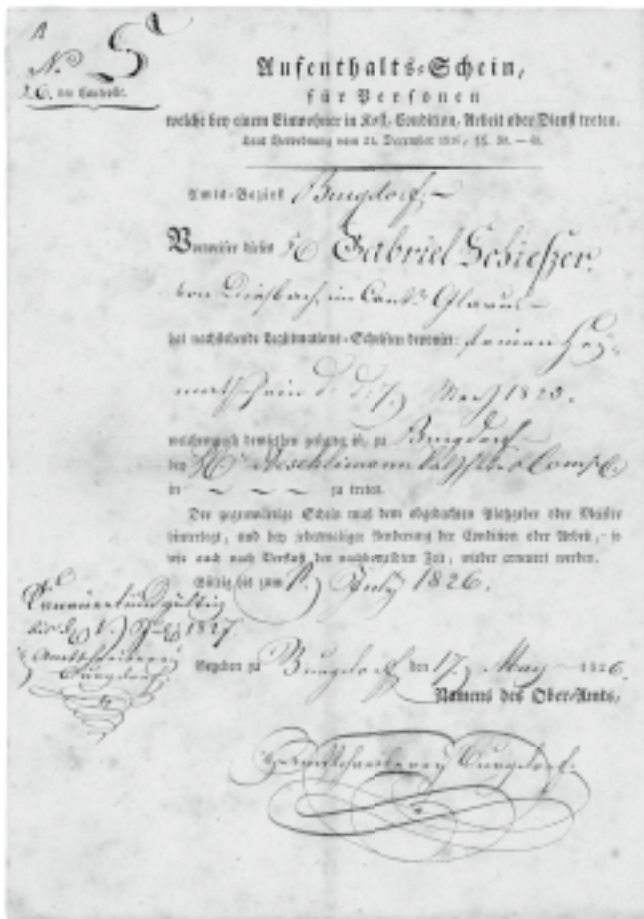 N.° 5
26. der Controlle.
Aufenthalts-Schein,
für Personen
welche bey einem Einwohner in Kost, Condition, Arbeit oder Dienst treten.
Laut Verordnung vom 21. December 1816, §§. 39. — 43.
Amts-Bezirk Burgdorf.
Vorweiser dieses Hr Gabriel Schießer.
von Diesbach, im Cant. Glarus
hat nachstehende Legitimations-Schriften deponirt: seinen Hei-
mathschein d. d. 7. May 1820.
welchemnach demselben gestattet ist, zu Burgdorf
bey Hr Aeschlimann & Comp.
in — — — zu treten.
Der gegenwärtige Schein muß dem obgedachten Platzgeber oder Meister
hinterlegt, und bey jedesmaliger Aenderung der Condition oder Arbeit, so
wie auch nach Verfluß der nachbemeldten Zeit, wieder erneuert werden.
Gültig bis zum 1. July 1826.
und gültig
bis d. 1. July 1827.
Amtschreiberey
Burgdorf.
Gegeben zu Burgdorf, den 17. May 1826.
Namens des Ober-Amts,
Amtschreiberey Burgdorf.